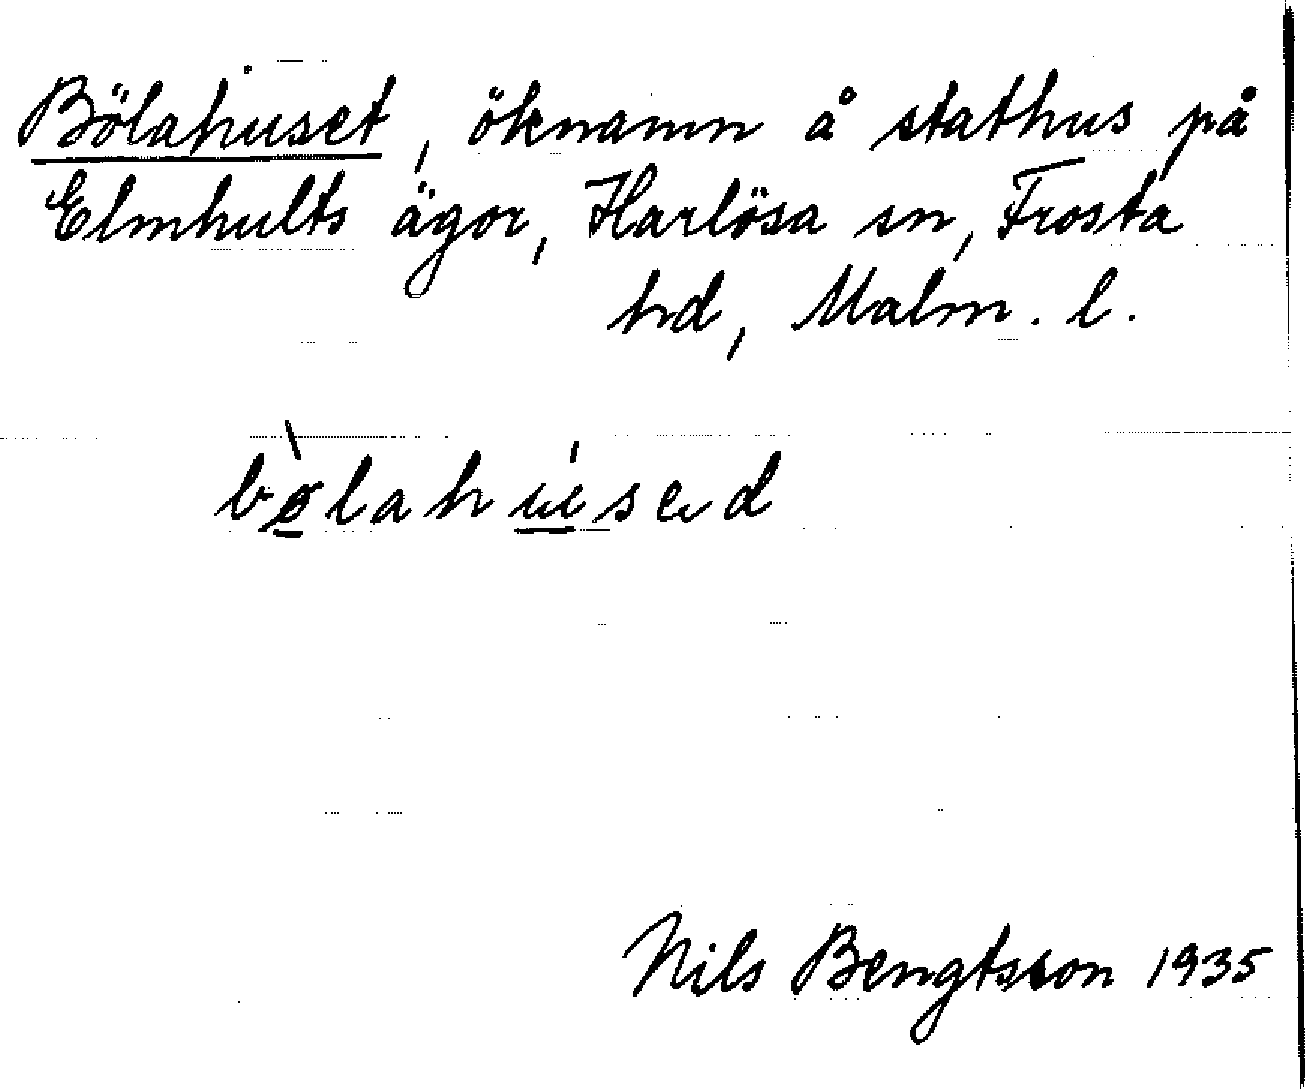 Bölahuset, öknamn å stathus på
Elmhults ägor, Harlösa sn, Frosta
hd, Malm. l.
bø̀lahúsed
Nils Bengtsson 1935